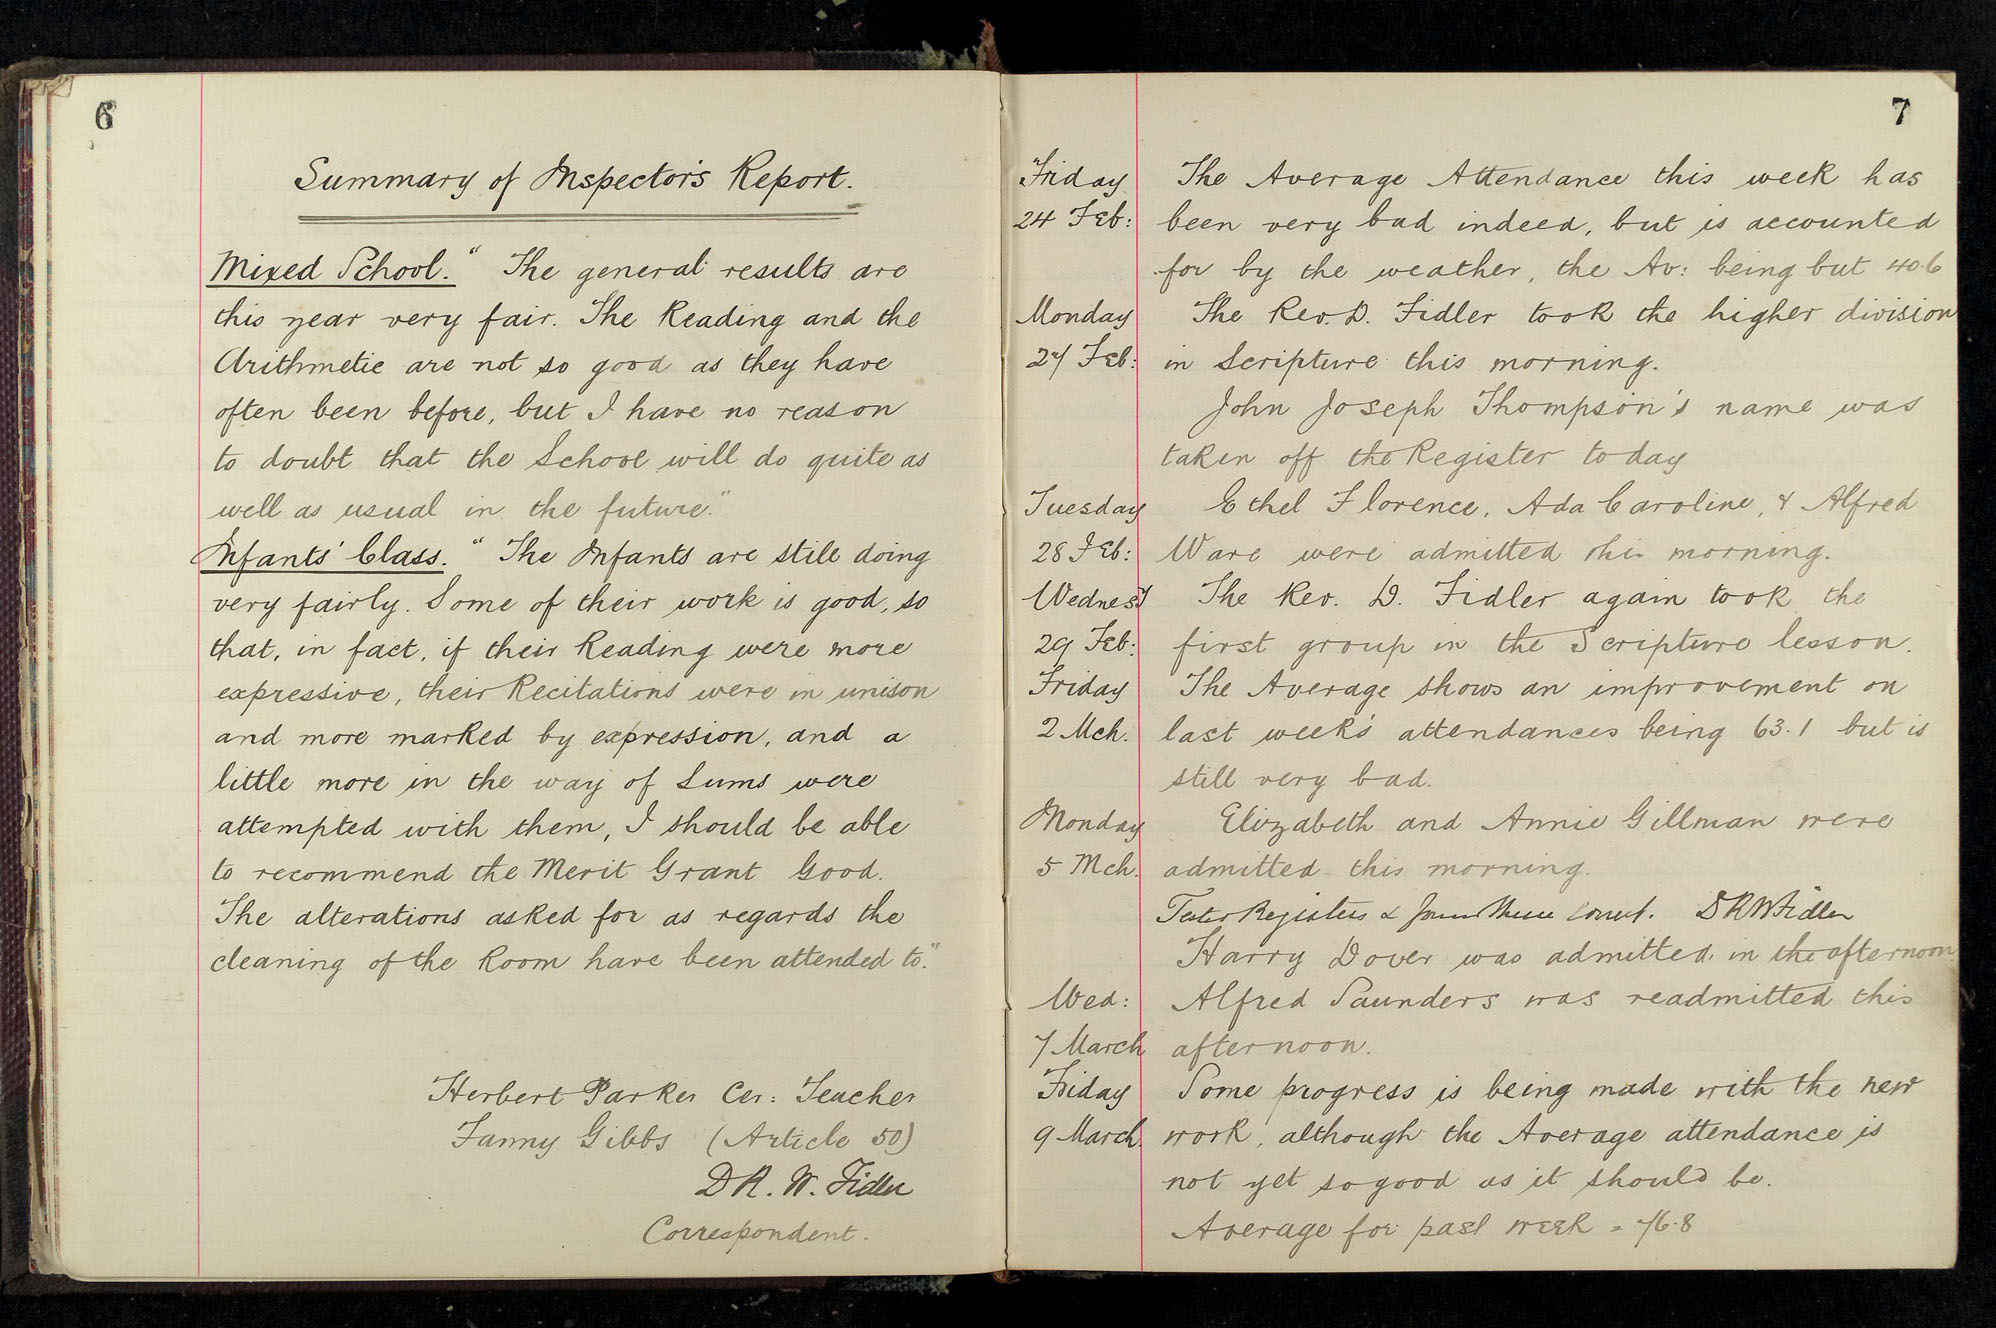 6
Summary of Inspector's Report.
Mixed School. " The general results are
this year very fair. The Reading and the
Arithmetic are not so good as they have
often been before, but I have no reason
to doubt that the School will do quite as
well as usual in the future."
Infants' Class. " The Infants are still doing
very fairly. Some of their work is good, so
that, in fact, if their Reading were more
expressive, their Recitations were in unison
and more marked by expression, and a
little more in the way of Sums were
attempted with them, I should be able
to recommend the Merit Grant Good.
The alterations asked for as regards the
cleaning of the Room have been attended to."
Herbert Parker Cer: Teacher
Fanny Gibbs (Article 50)
D R. W. Fidler
Correspondent.
7
Friday The Average Attendance this week has
24 Feb: been very bad indeed, but is accounted
for by the weather, the Av: being but 40.6
Monday The Rev. D. Fidler took the higher division
27 Feb: in Scripture this morning.
John Joseph Thompson's name was
taken off the Register today
Tuesday Ethel Florence, Ada Caroline, & Alfred
28 Feb: Ware were admitted this morning.
Wednesd The Rev. D. Fidler again took the
29 Feb: first group in the Scripture lesson.
Friday The Average shows an improvement on
2 Mch. last week's attendances being 63.1 but is
still very bad.
Monday Elizabeth and Annie Gillman were
5 Mch. admitted this morning.
Registers & correct. D R W Fidler
Harry Dover was admitted in the afternoon.
Wed: Alfred Saunders was readmitted this
7 March afternoon.
Friday Some progress is being made with the new
9 March. work, although the Average attendance is
not yet so good as it should be.
Average for past week = 76.8